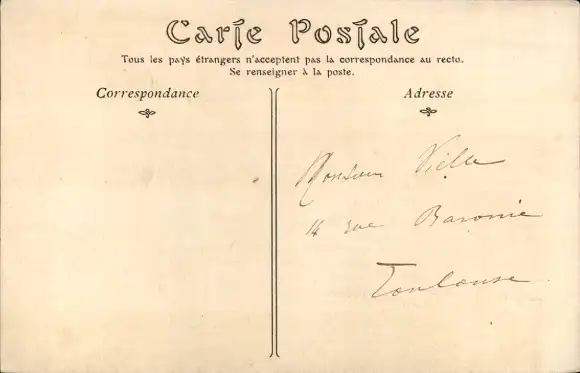 Carte Postale
Tous les pays étrangers n'acceptent pas la correspondance au recto.
Se renseigner à la poste.
Correspondance
Adresse
Monsieur Vielle
14 rue Baronie
Toulouse